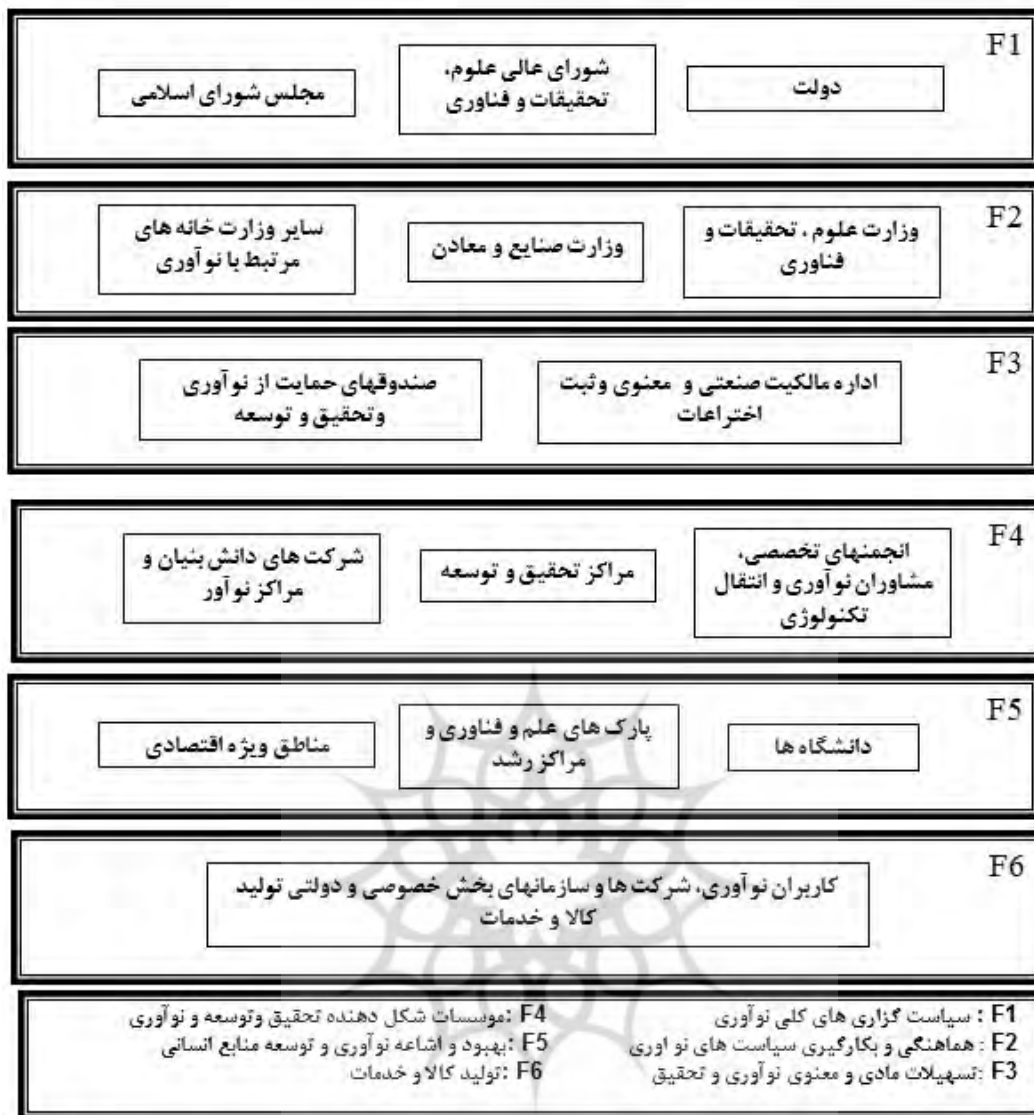 F1
دولت
شورای عالی علوم،
تحقیقات و فناوری
مجلس شورای اسلامی
F2
وزارت علوم ، تحقیقات و
فناوری
وزارت صنایع و معادن
سایر وزارت خانه های
مرتبط با نوآوری
F3
اداره مالکیت صنعتی و معنوی وثبت
اختراعات
صندوقهای حمایت از نوآوری
وتحقیق و توسعه
F4
انجمنهای تخصصی،
مشاوران نوآوری و انتقال
تکنولوژی
مراکز تحقیق و توسعه
شرکت های دانش بنیان و
مراکز نوآور
F5
دانشگاه ها
پارک های علم و فناوری و
مراکز رشد
مناطق ویژه اقتصادی
F6
کاربران نوآوری، شرکت ها و سازمانهای بخش خصوصی و دولتی تولید
کالا و خدمات
F1 : سیاست گزاری های کلی نوآوری
F2 : هماهنگی و بکارگیری سیاست های نو اوری
F3 :تسهیلات مادی و معنوی نوآوری و تحقیق
F4 :موسسات شکل دهنده تحقیق وتوسعه و نوآوری
F5 :بهبود و اشاعه نوآوری و توسعه منابع انسانی
F6 :تولید کالا و خدمات